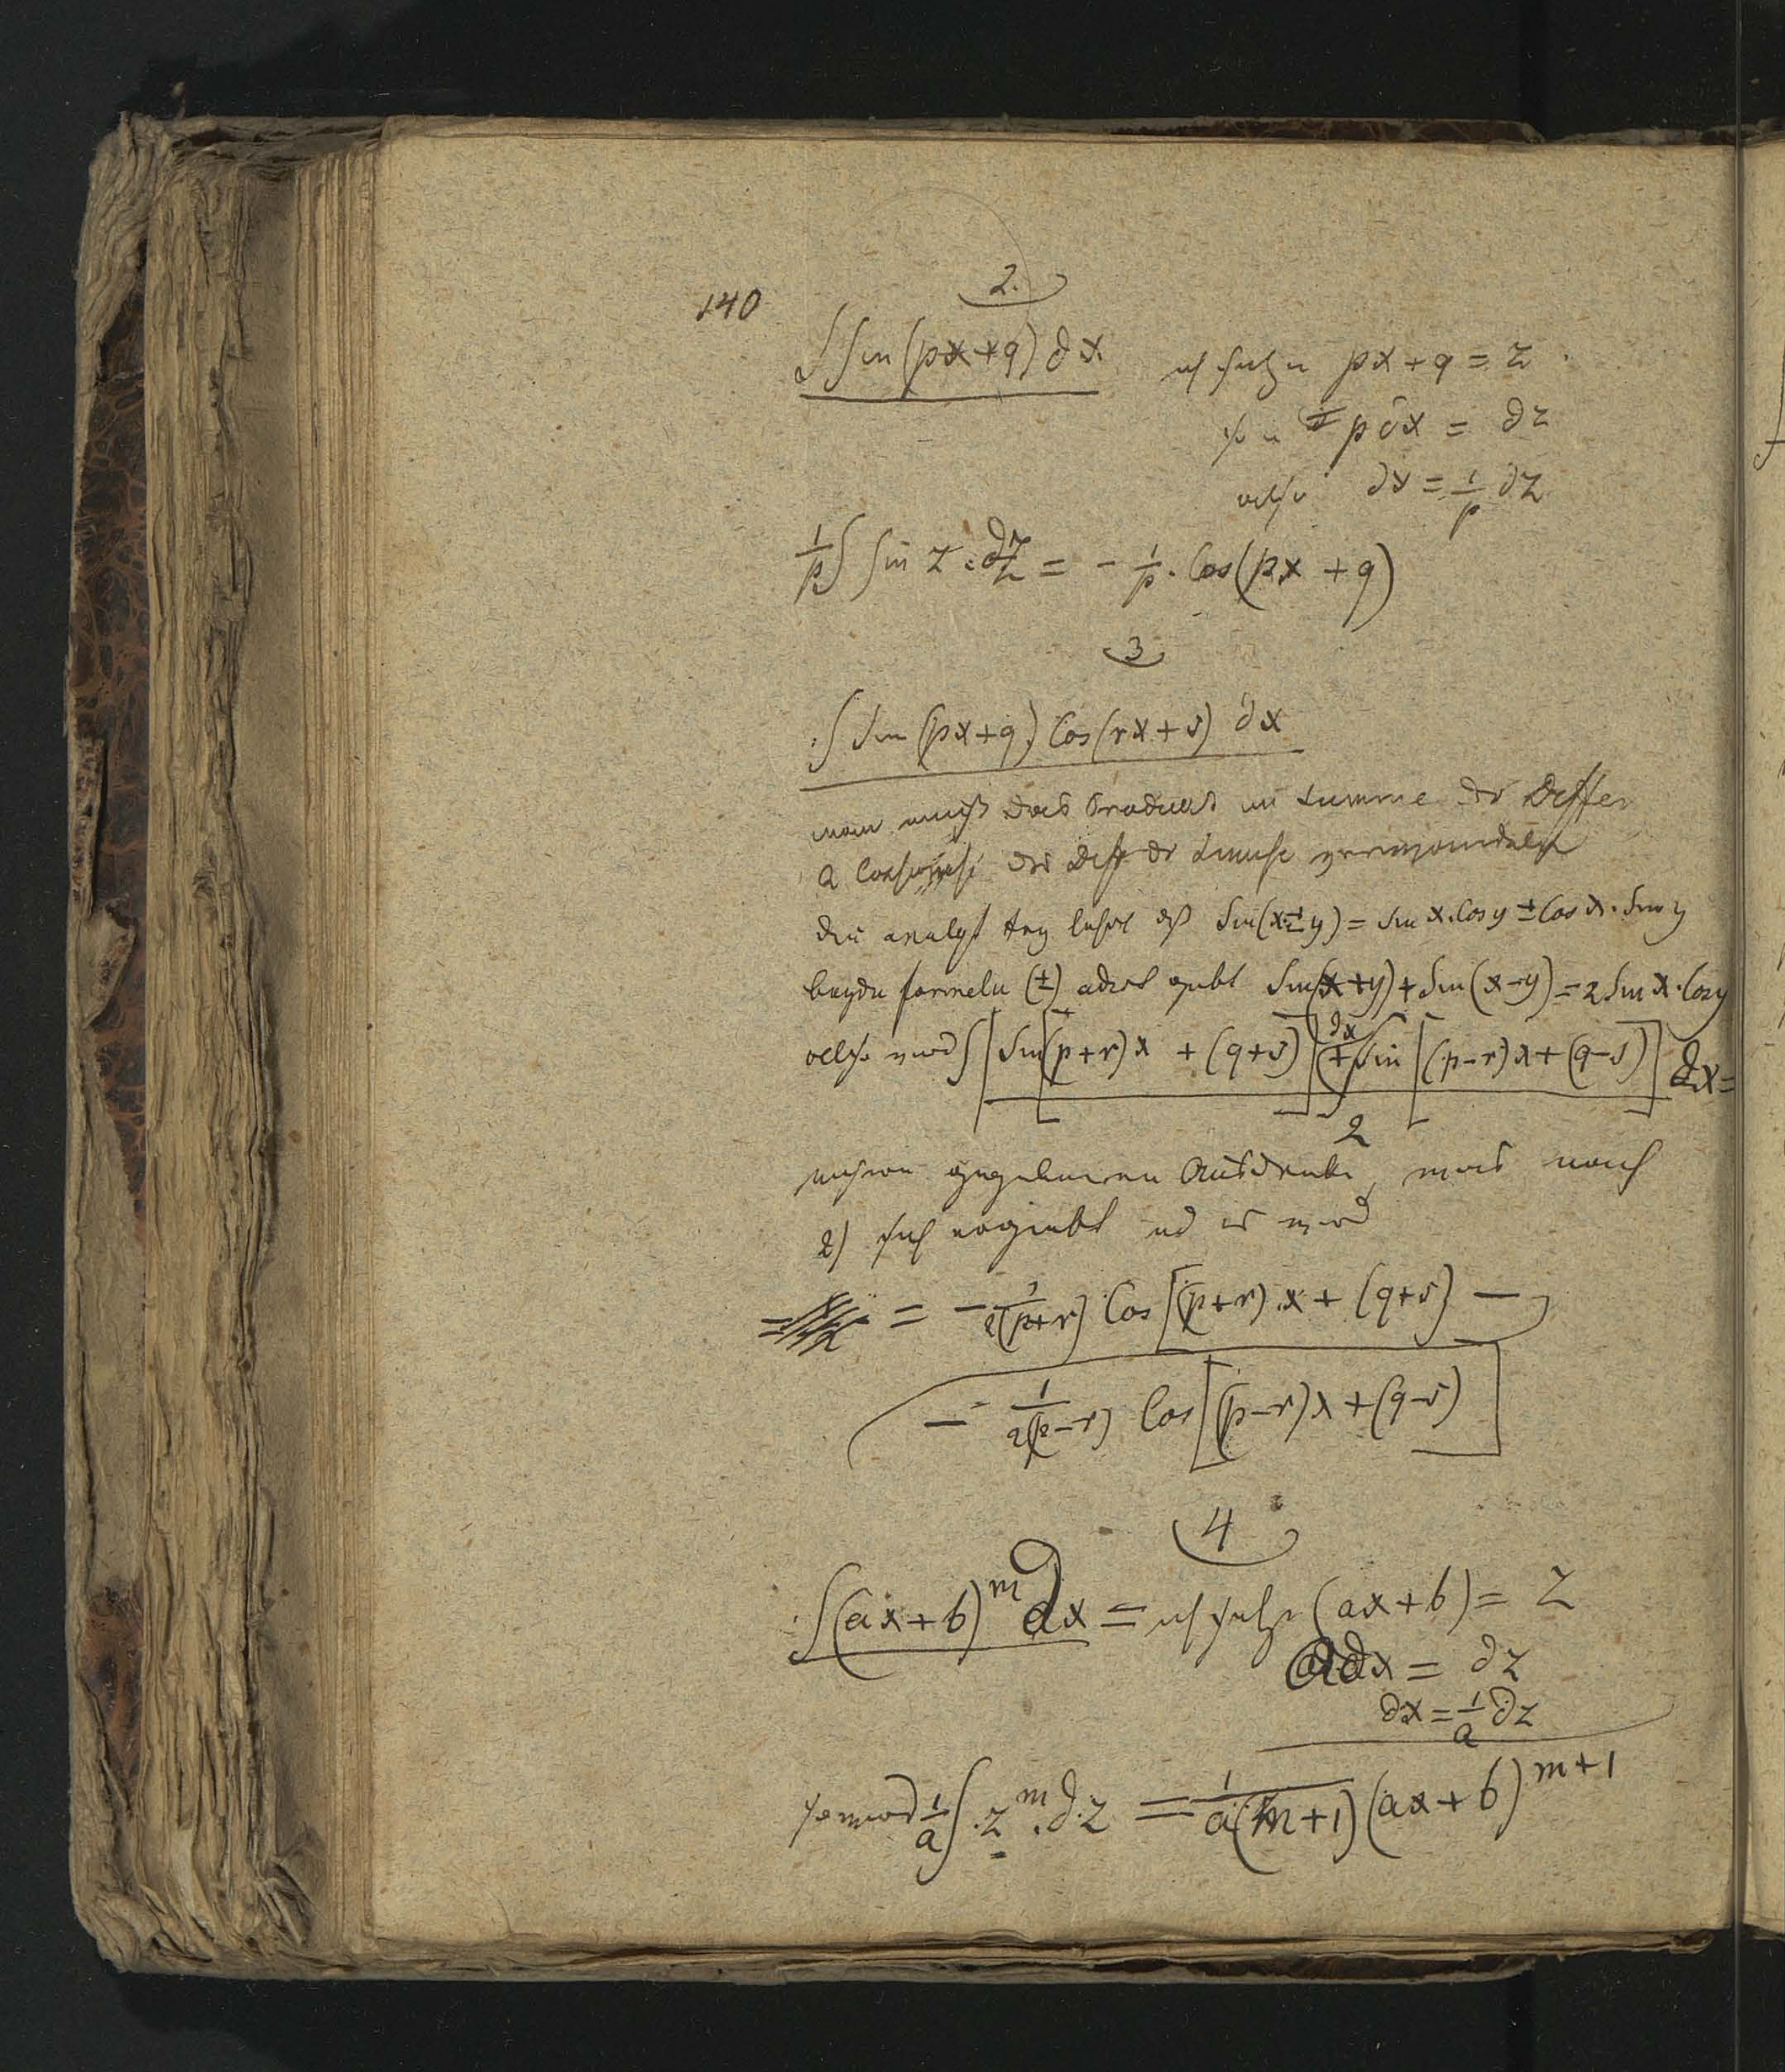 140
2.
∫ Sin (px+q) ∂x. ich setze px+q = z.
p∂x = ∂z
also ∂x = 1/p ∂z
1/p ∫ Sin z . ∂z = - 1/p . Cos(px + q)
3
∫ Sin (px+q) Cos(rx+s) ∂x
man muß das Product in Summe der Differ
die der verwandeln
die analyt Trig lehrt dß Sin(x±y) = Sin x. Cos y ± Cos x. Sin y
beyde formeln (±) adirt giebt Sin(x+y) + Sin(x-y) = 2 Sin x. Cos y
also wird ∫ [Sin[(p+r)x + (q+s)] ∂x + ∫ Sin [(p-r)x + (q-s)]] / 2 ∂x =
gegebenen Ausdruke, was nach
2) sich ergiebt und es wird
= - 1/2(p+r) Cos [(p+r).x + (q+s) -
- 1/2(p-r) Cos [(p-r)x + (q-s)]
4
∫(ax+b)^m ∂x = ich setze (ax+b) = z
a∂x = ∂z
∂x = 1/a ∂z
so wird 1/a ∫ . z^m . ∂.z = 1/a(m+1) (ax+b)^m+1